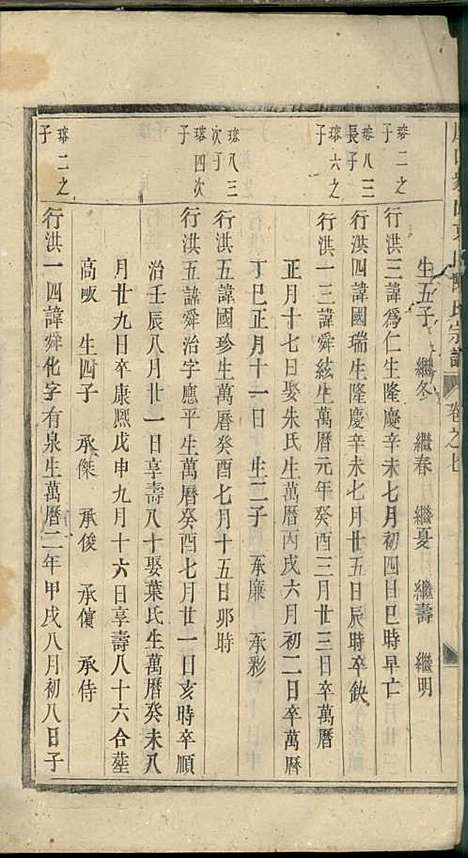 陳氏宗譜 卷之七
生五子 繼冬 繼春 繼夏 繼壽 繼明
瑢二之子
行洪三諱爲仁生隆慶辛未七月初四日巳時早亡
瑢八三長子
行洪四諱國瑞生隆慶辛未七月廿五日辰時卒缺
瑢六之子
行洪一三諱舜絃生萬曆元年癸酉三月廿三日卒萬曆
正月十七日娶朱氏生萬曆丙戌六月初二日卒萬曆
丁巳正月十一日 生二子 承廉 承彩
瑢八三次子
行洪五諱國珍生萬曆癸酉七月十五日卯時
瑢四次子
行洪五諱舜治字應平生萬曆癸酉七月廿一日亥時卒順
治壬辰八月廿一日享壽八十娶葉氏生萬曆癸未八
月廿九日卒康熙戊申九月十六日享壽八十六合塟
高 生四子 承傑 承俊 承儐 承侍
瑢二之子
行洪一四諱舜化字有泉生萬曆二年甲戌八月初八日子